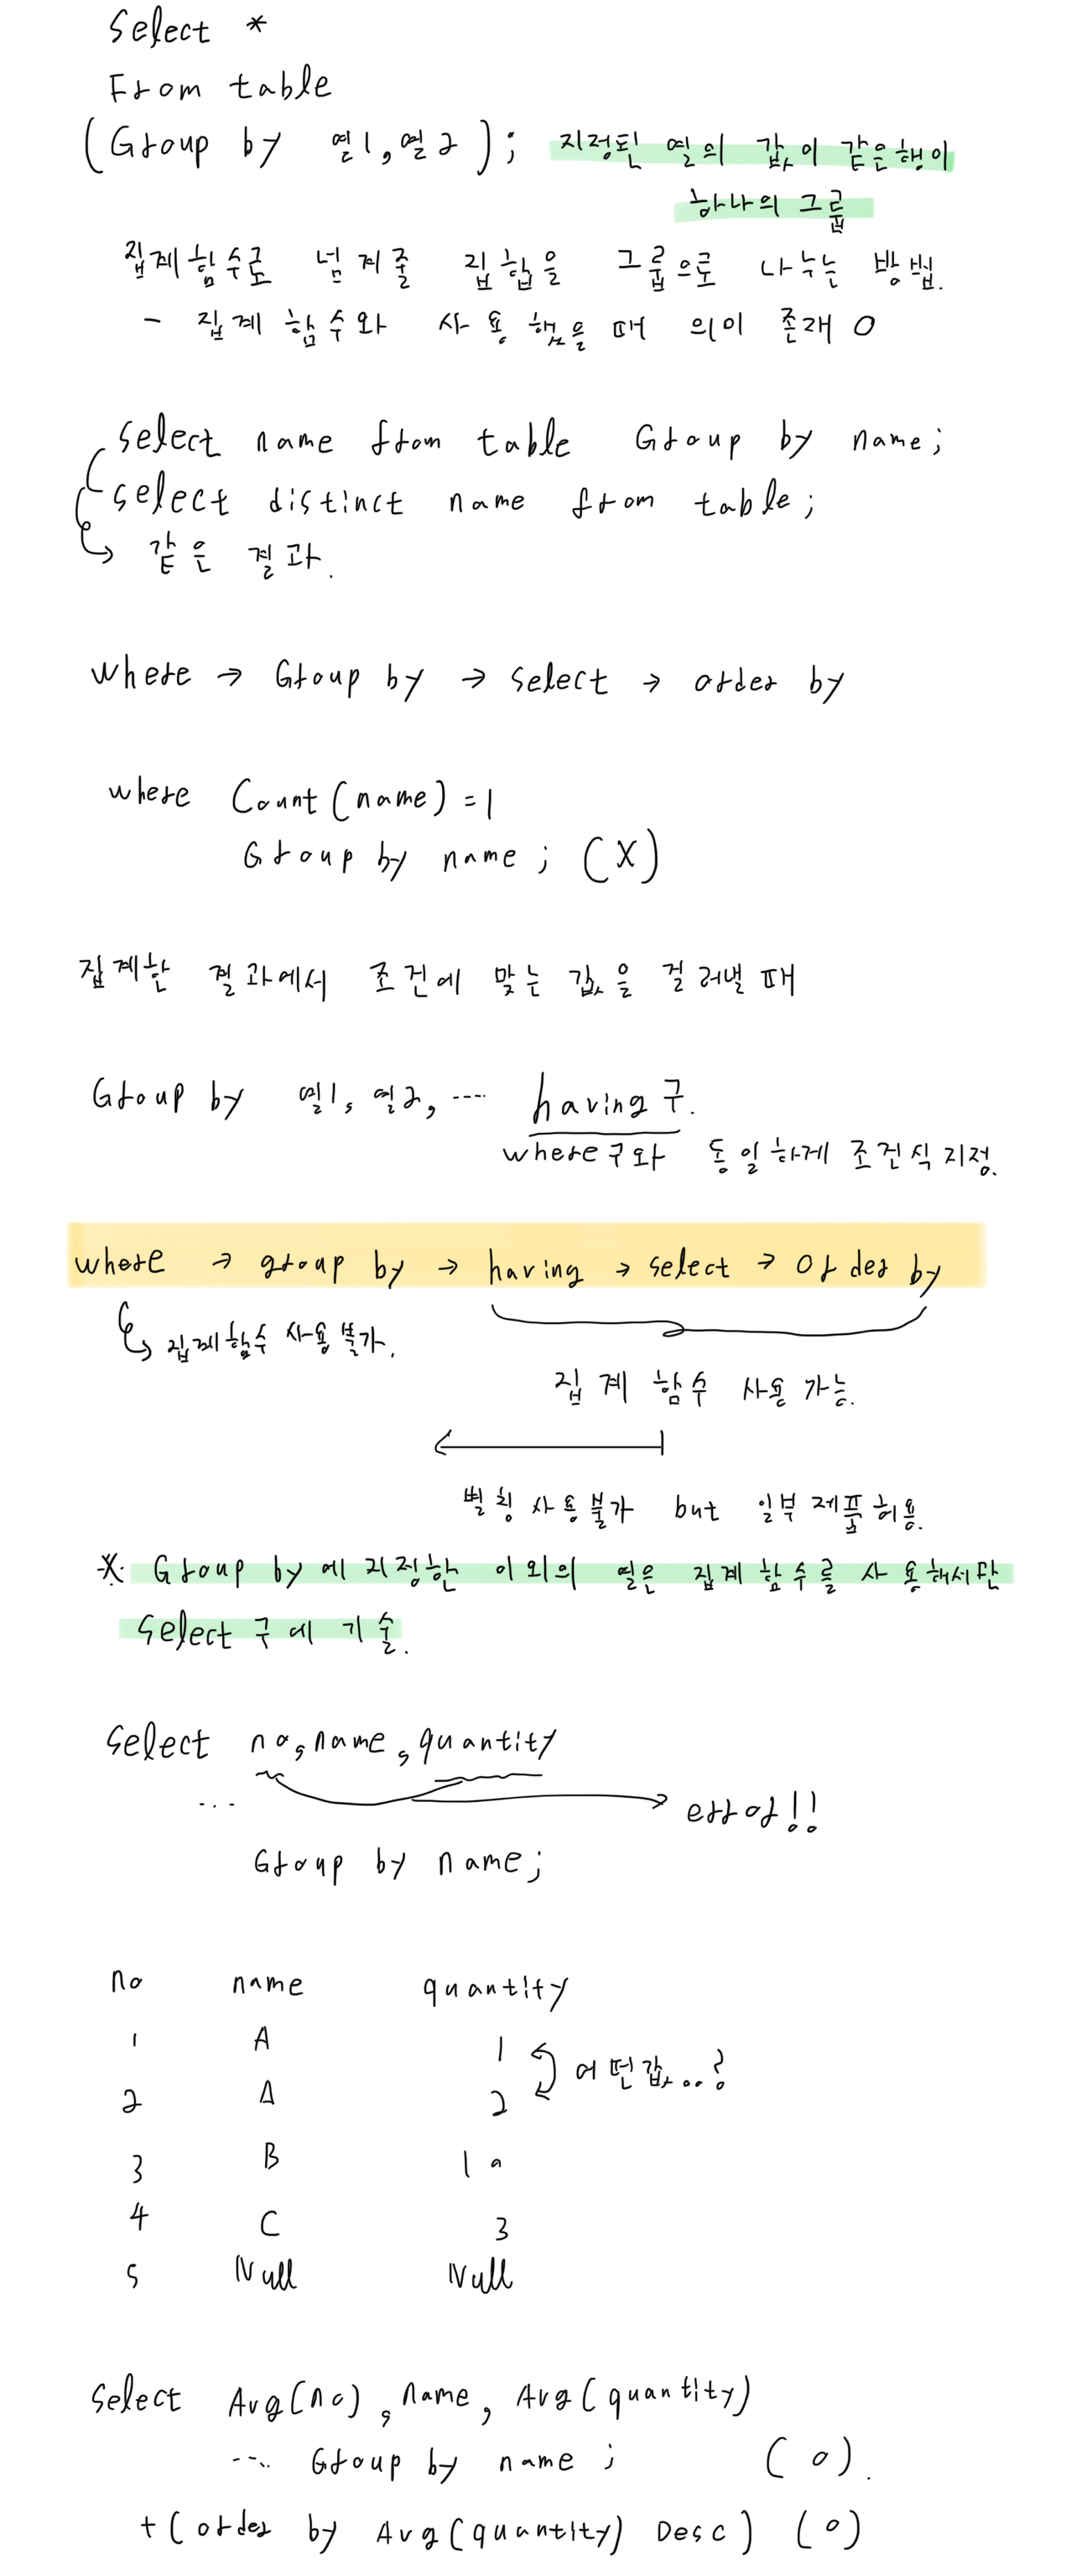 Select *
From table
(Group by 열1, 열2); 지정된 열의 값이 같은행이
하나의 그룹
집계함수로 넘겨줄 집합을 그룹으로 나누는 방법.
- 집계 함수와 사용했을때 의미 존재 O
select name from table Group by name;
select distinct name from table;
→ 같은 결과.
where → Group by → select → order by
where Count(name)=1
Group by name; (X)
집계한 결과에서 조건에 맞는 값을 걸러낼 때
Group by 열1, 열2, .... having 구.
where구와 동일하게 조건식 지정.
where → group by → having → select → order by
↳ 집계함수 사용 불가.
집계 함수 사용 가능.
별칭 사용불가 but 일부 제품 허용.
※ Group by에 지정한 이외의 열은 집계 함수를 사용해서만
select 구에 기술.
Select no, name, quantity
... → error!!
Group by name;
no name quantity
1 A 1
2 A 2 어떤값..?
3 B 10
4 C 3
5 Null Null
Select Avg(no), name, Avg(quantity)
.... Group by name; (o).
+(order by Avg(quantity) Desc) (o)